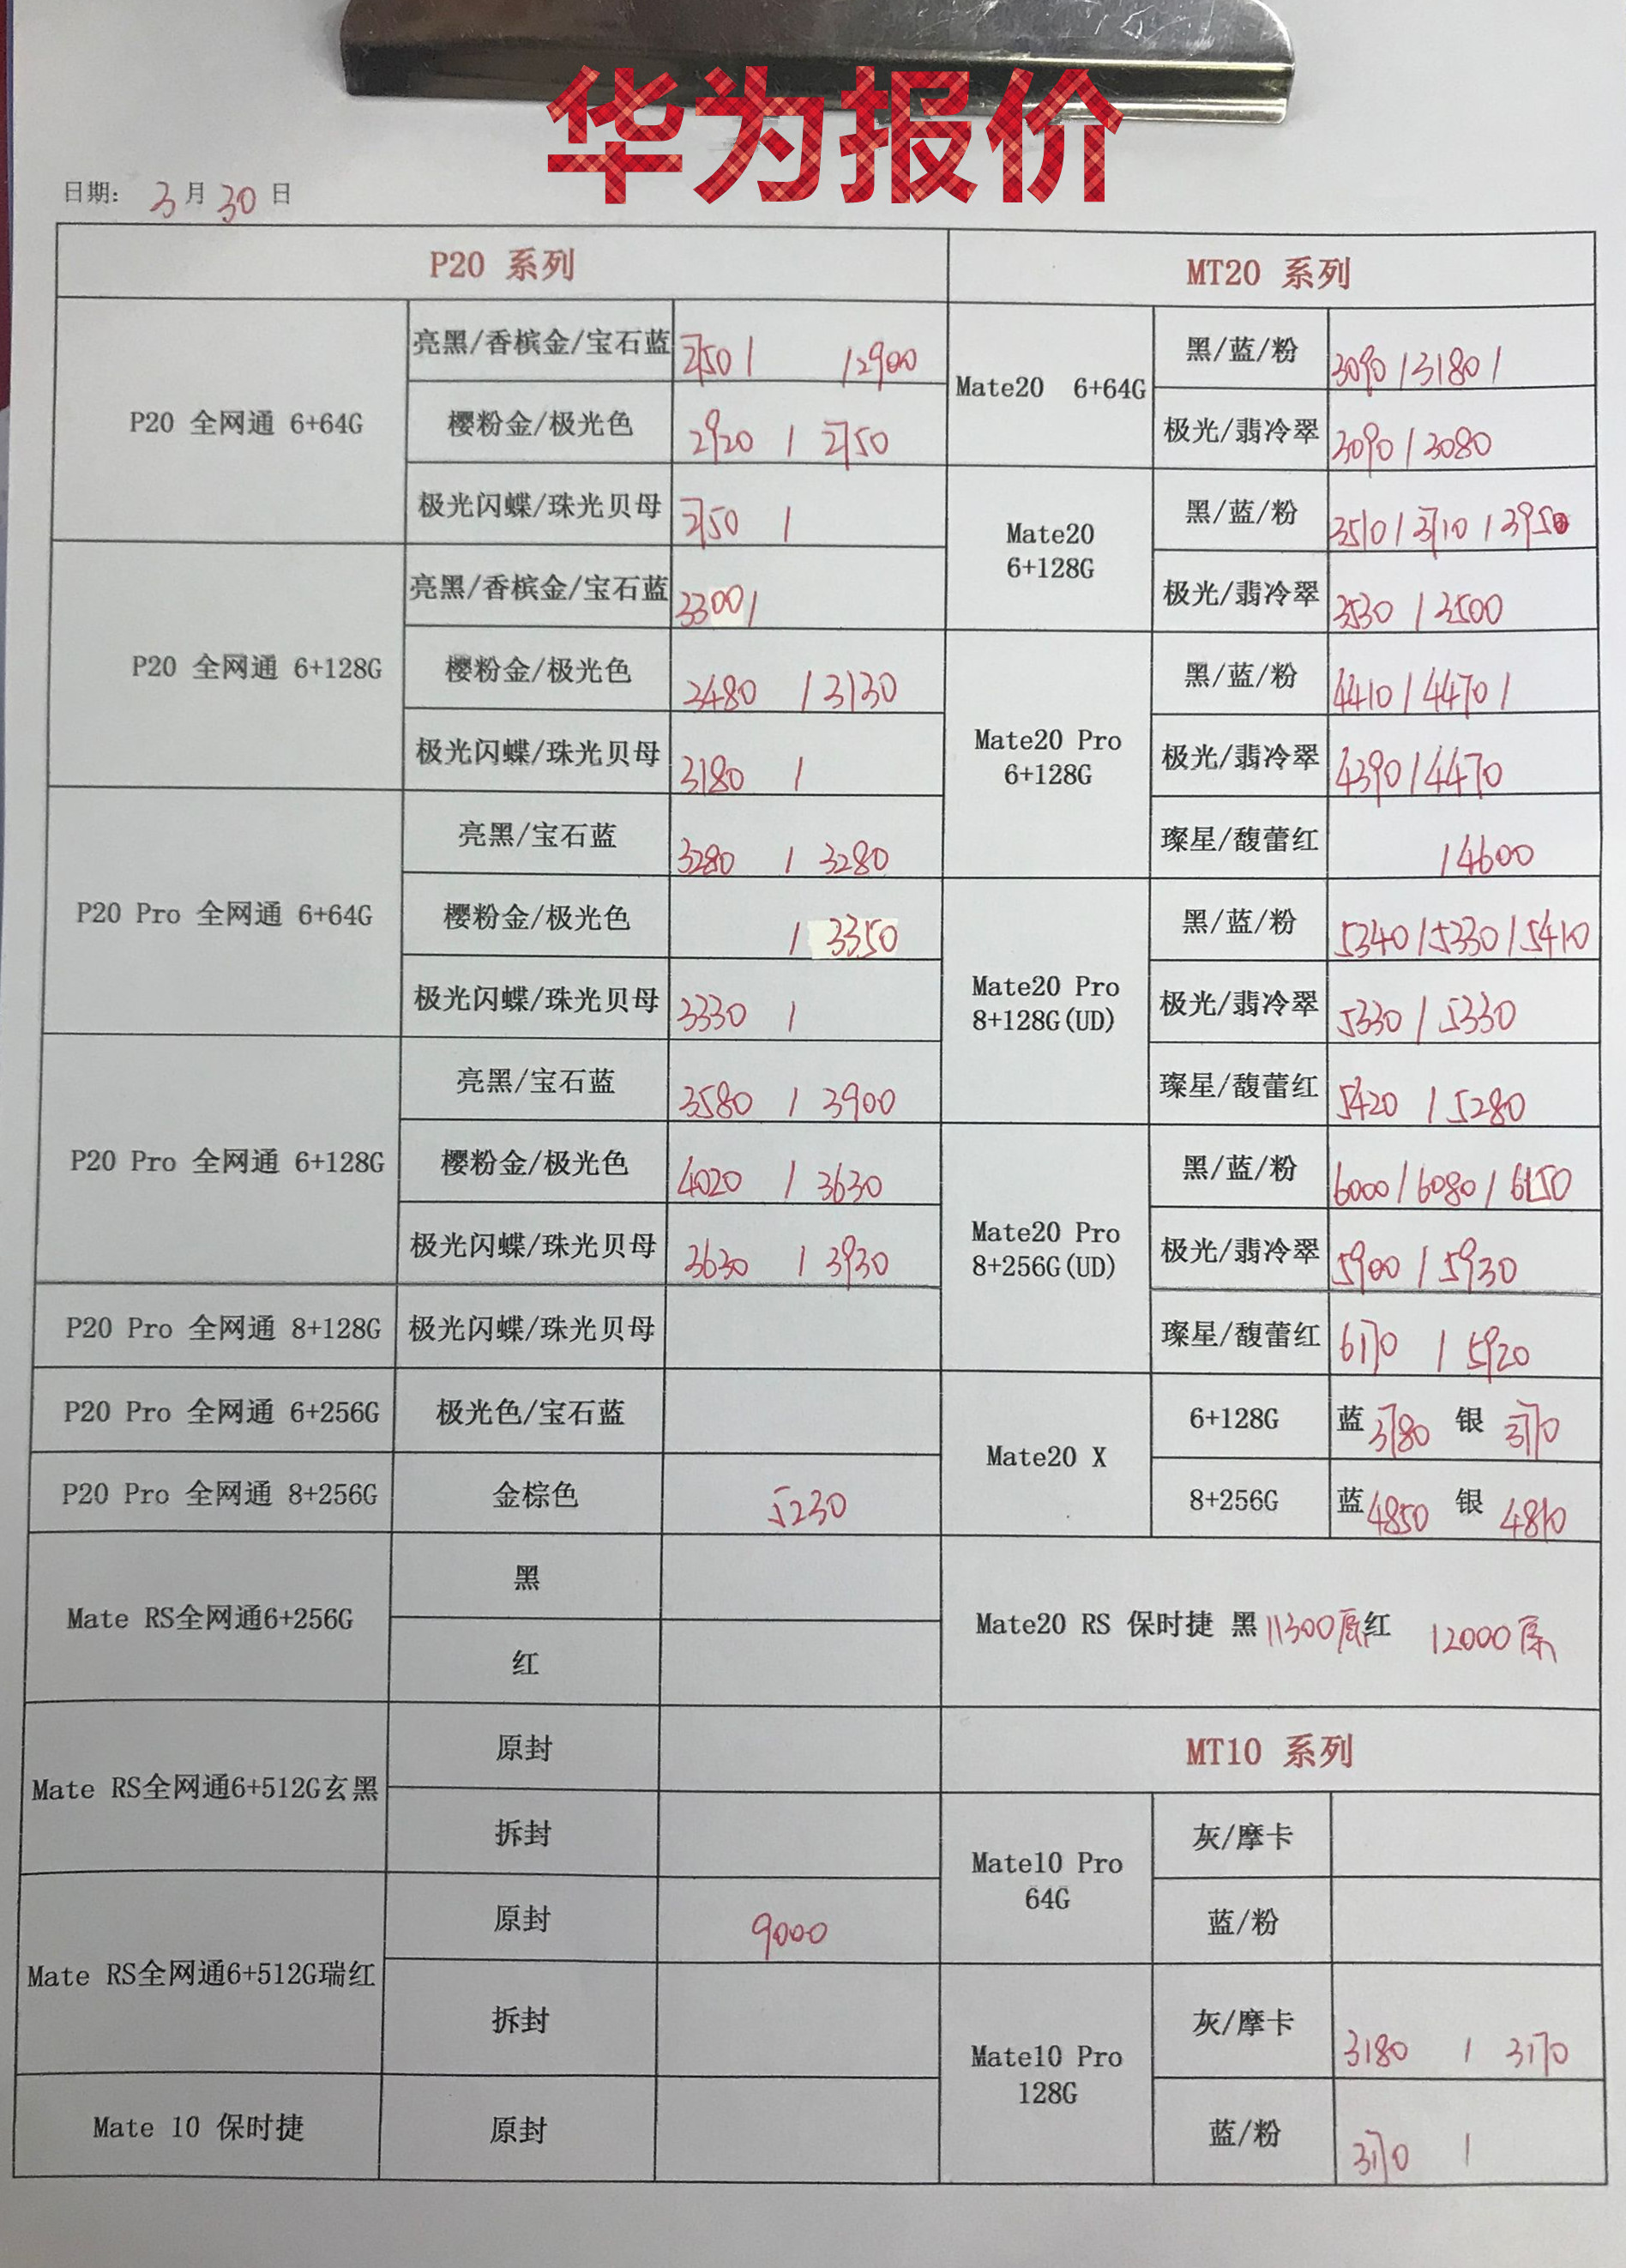 华为报价
日期: 3月30日
P20 系列
P20 全网通 6+64G
亮黑/香槟金/宝石蓝 2750 / / 2900
樱粉金/极光色 2920 / 2750
极光闪蝶/珠光贝母 2750 /
P20 全网通 6+128G
亮黑/香槟金/宝石蓝 3300 /
樱粉金/极光色 3480 / 3130
极光闪蝶/珠光贝母 3180 /
P20 Pro 全网通 6+64G
亮黑/宝石蓝 3280 / 3280
樱粉金/极光色 / 3350
极光闪蝶/珠光贝母 3330 /
P20 Pro 全网通 6+128G
亮黑/宝石蓝 3580 / 3900
樱粉金/极光色 4020 / 3630
极光闪蝶/珠光贝母 3630 / 3930
P20 Pro 全网通 8+128G 极光闪蝶/珠光贝母
P20 Pro 全网通 6+256G 极光色/宝石蓝
P20 Pro 全网通 8+256G 金棕色 5230
Mate RS全网通6+256G
黑
红
Mate RS全网通6+512G玄黑
原封
拆封
Mate RS全网通6+512G瑞红
原封 9000
拆封
Mate 10 保时捷 原封
MT20 系列
Mate20 6+64G
黑/蓝/粉 3090 / 3180 /
极光/翡冷翠 3090 / 3080
Mate20
6+128G
黑/蓝/粉 3510 / 3710 / 3950
极光/翡冷翠 3530 / 3500
Mate20 Pro
6+128G
黑/蓝/粉 4410 / 4470 /
极光/翡冷翠 4390 / 4470
璨星/馥蕾红 / 4600
Mate20 Pro
8+128G(UD)
黑/蓝/粉 5340 / 5330 / 5410
极光/翡冷翠 5330 / 5330
璨星/馥蕾红 5420 / 5280
Mate20 Pro
8+256G(UD)
黑/蓝/粉 6000 / 6080 / 6150
极光/翡冷翠 5900 / 5930
璨星/馥蕾红 6170 / 5920
Mate20 X
6+128G 蓝 3780 银 3770
8+256G 蓝 4850 银 4810
Mate20 RS 保时捷 黑 11300原 红 12000原
MT10 系列
Mate10 Pro
64G
灰/摩卡
蓝/粉
Mate10 Pro
128G
灰/摩卡 3180 / 3170
蓝/粉 3170 /